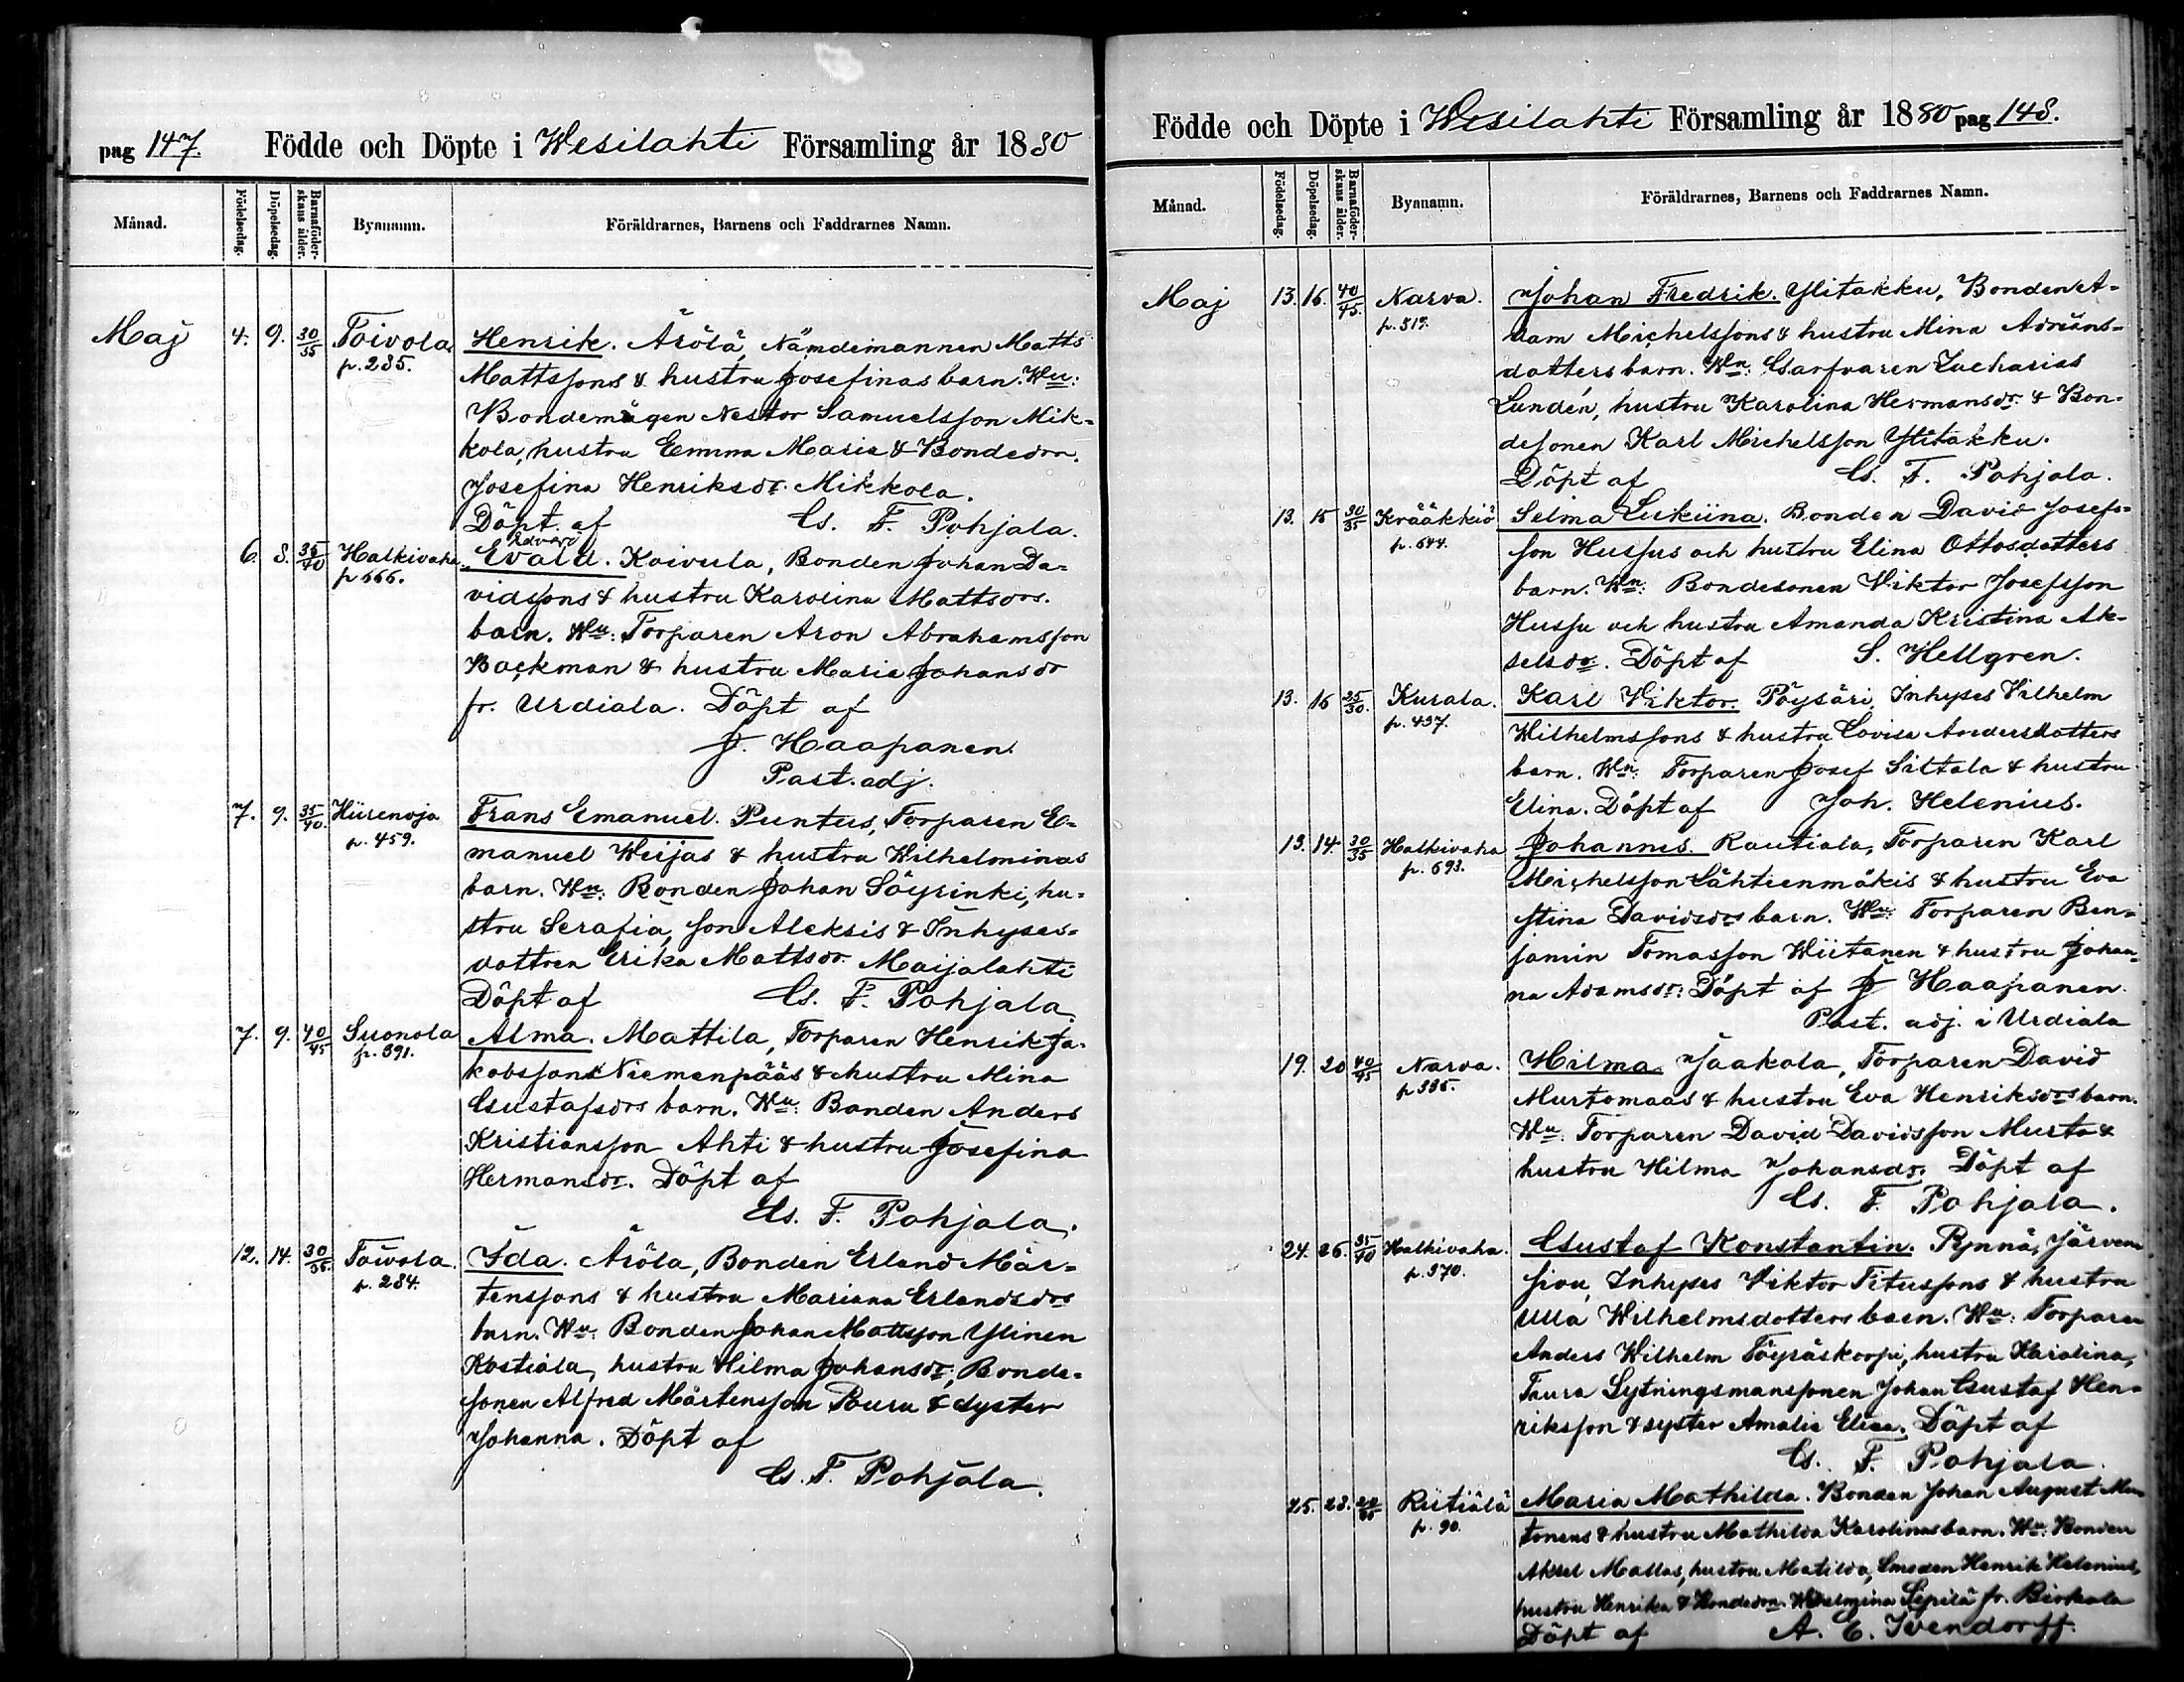 pag 147. Födde och Döpte i Wesilahti Församling år 1880
Månad. Födelsedag. Döpelsedag. Barnaföderskans ålder. Bynamn. Föräldrarnes, Barnens och Faddrarnes Namn.
Maj 4. 9. 30/35 Toivola Henrik. Ärölä, Nämdemannen Matts
p. 285. Mattssons & hustru Josefinas barn. Wn:
Bondemågen Nestor Samuelsson Mik-
kola, hustru Emma Maria & Bondedrn.
Josefina Henriksdr. Mikkola.
Döpt af G. F. Pohjala.
Edvard
6. 8. 35/40 Halkivaha Evald. Koivula, Bonden Johan Da-
p 666. vidssons & hustru Karolina Mattsdrs.
barn. Wn: Torparen Aron Abrahamsson
Backman & hustru Maria Johansdr
fr. Urdiala. Döpt af
J. Haapanen.
Past. adj.
7. 9. 35/40. Hiirenoja Frans Emanuel. Puntus, Torparen E-
p. 459. manuel Weijas & hustru Wilhelminas
barn. Wn. Bonden Johan Söyrinki, hu-
stru Serafia, son Aleksis & Inhyses-
dottren Erika Mattsdr. Maijalahti
Döpt af G. F. Pohjala.
7. 9. 40/45 Suonola Alma. Mattila, Torparen Henrik Ja-
p. 391. kobssons Niemenpääs & hustru Mina
Gustafsdrs barn. Wn: Bonden Anders
Kristiansson Ahti & hustru Josefina
Hermansdr. Döpt af
G. F. Pohjala.
12. 14. 30/35. Toivola. Ida. Äröla, Bonden Erland Mår-
p. 284. tenssons & hustru Mariana Erlandsdrs
barn. Wn: Bonden Johan Mattsson Ylinen
Kostiala, hustru Hilma Johansdr, Bonde-
sonen Alfred Mårtensson Buru & syster
Johanna. Döpt af
G. F. Pohjala.
Födde och Döpte i Wesilahti Församling år 1880 pag 148.
Månad. Födelsedag. Döpelsedag. Barnaföderskans ålder. Bynamn. Föräldrarnes, Barnens och Faddrarnes Namn.
Maj 13. 16. 40/45. Narva. Johan Fredrik. Ylitakku, Bonden A-
p. 517. dam Michelssons & hustru Mina Adrians-
dotters barn. Wn: Garfvaren Zacharias
Lundén, hustru Karolina Hermansdr. & Bon-
desonen Karl Michelsson Ylitakku.
Döpt af G. F. Pohjala.
13. 15 30/35 Krääkkiö Selma Lukiina. Bonden David Josefs-
p. 644. son Hussus och hustru Elina Ottosdotters
barn. Wn: Bondesonen Viktor Josefsson
Hussu och hustru Amanda Kristina Ak-
selsdr. Döpt af S. Hellgren.
13. 16 25/30. Kurala. Karl Viktor. Pöysäri, Inhyses Vilhelm
p. 437. Wilhelmssons & hustru Lovisa Andersdotters
barn. Wn: Torparen Josef Siltala & hustru
Elina. Döpt af Joh. Helenius.
13. 14. 30/35 Halkivaha Johannes. Rautiala, Torparen Karl
p. 693. Michelsson Lähteenmäkis & hustru Eva
Stina Davidsdrs barn. Wn: Torparen Ben-
jamin Tomasson Wiitanen & hustru Johan-
na Adamsdr: Döpt af J Haapanen.
Past. adj. i Urdiala
19. 20 40/45 Narva. Hilma. Jaakola, Torparen David
Murtomaas & hustru Eva Henriksdrs barn.
Wn: Torparen David Davidsson Murto &
hustru Hilma Johansdr. Döpt af
G. F. Pohjala.
24. 26. 35/40 Halkivaha. Gustaf Konstantin. Rynnä, Järven-
p. 370. sivu, Inhyses Viktor Titussons & hustru
Ulla Wilhelmsdotters barn. Wn: Torparen
Anders Wilhelm Töyräskorpi, hustru Karolina,
Taura Lytningsmanssonen Johan Gustaf Hen-
riksson & syster Amalia Elisa. Döpt af
G. F. Pohjala.
25. 28. Riitiälä Maria Mathilda. Bonden Johan August
p. 90. tonens & hustru Mathilda Karolinas barn. Wn: Bonden
Aksel Mallas, hustru Matilda, Smeden Henrik Helenius,
hustru Henrika & Bondedrn. Wilhelmina Sipilä fr. Birkala
Döpt af A. E. Ivendorff.